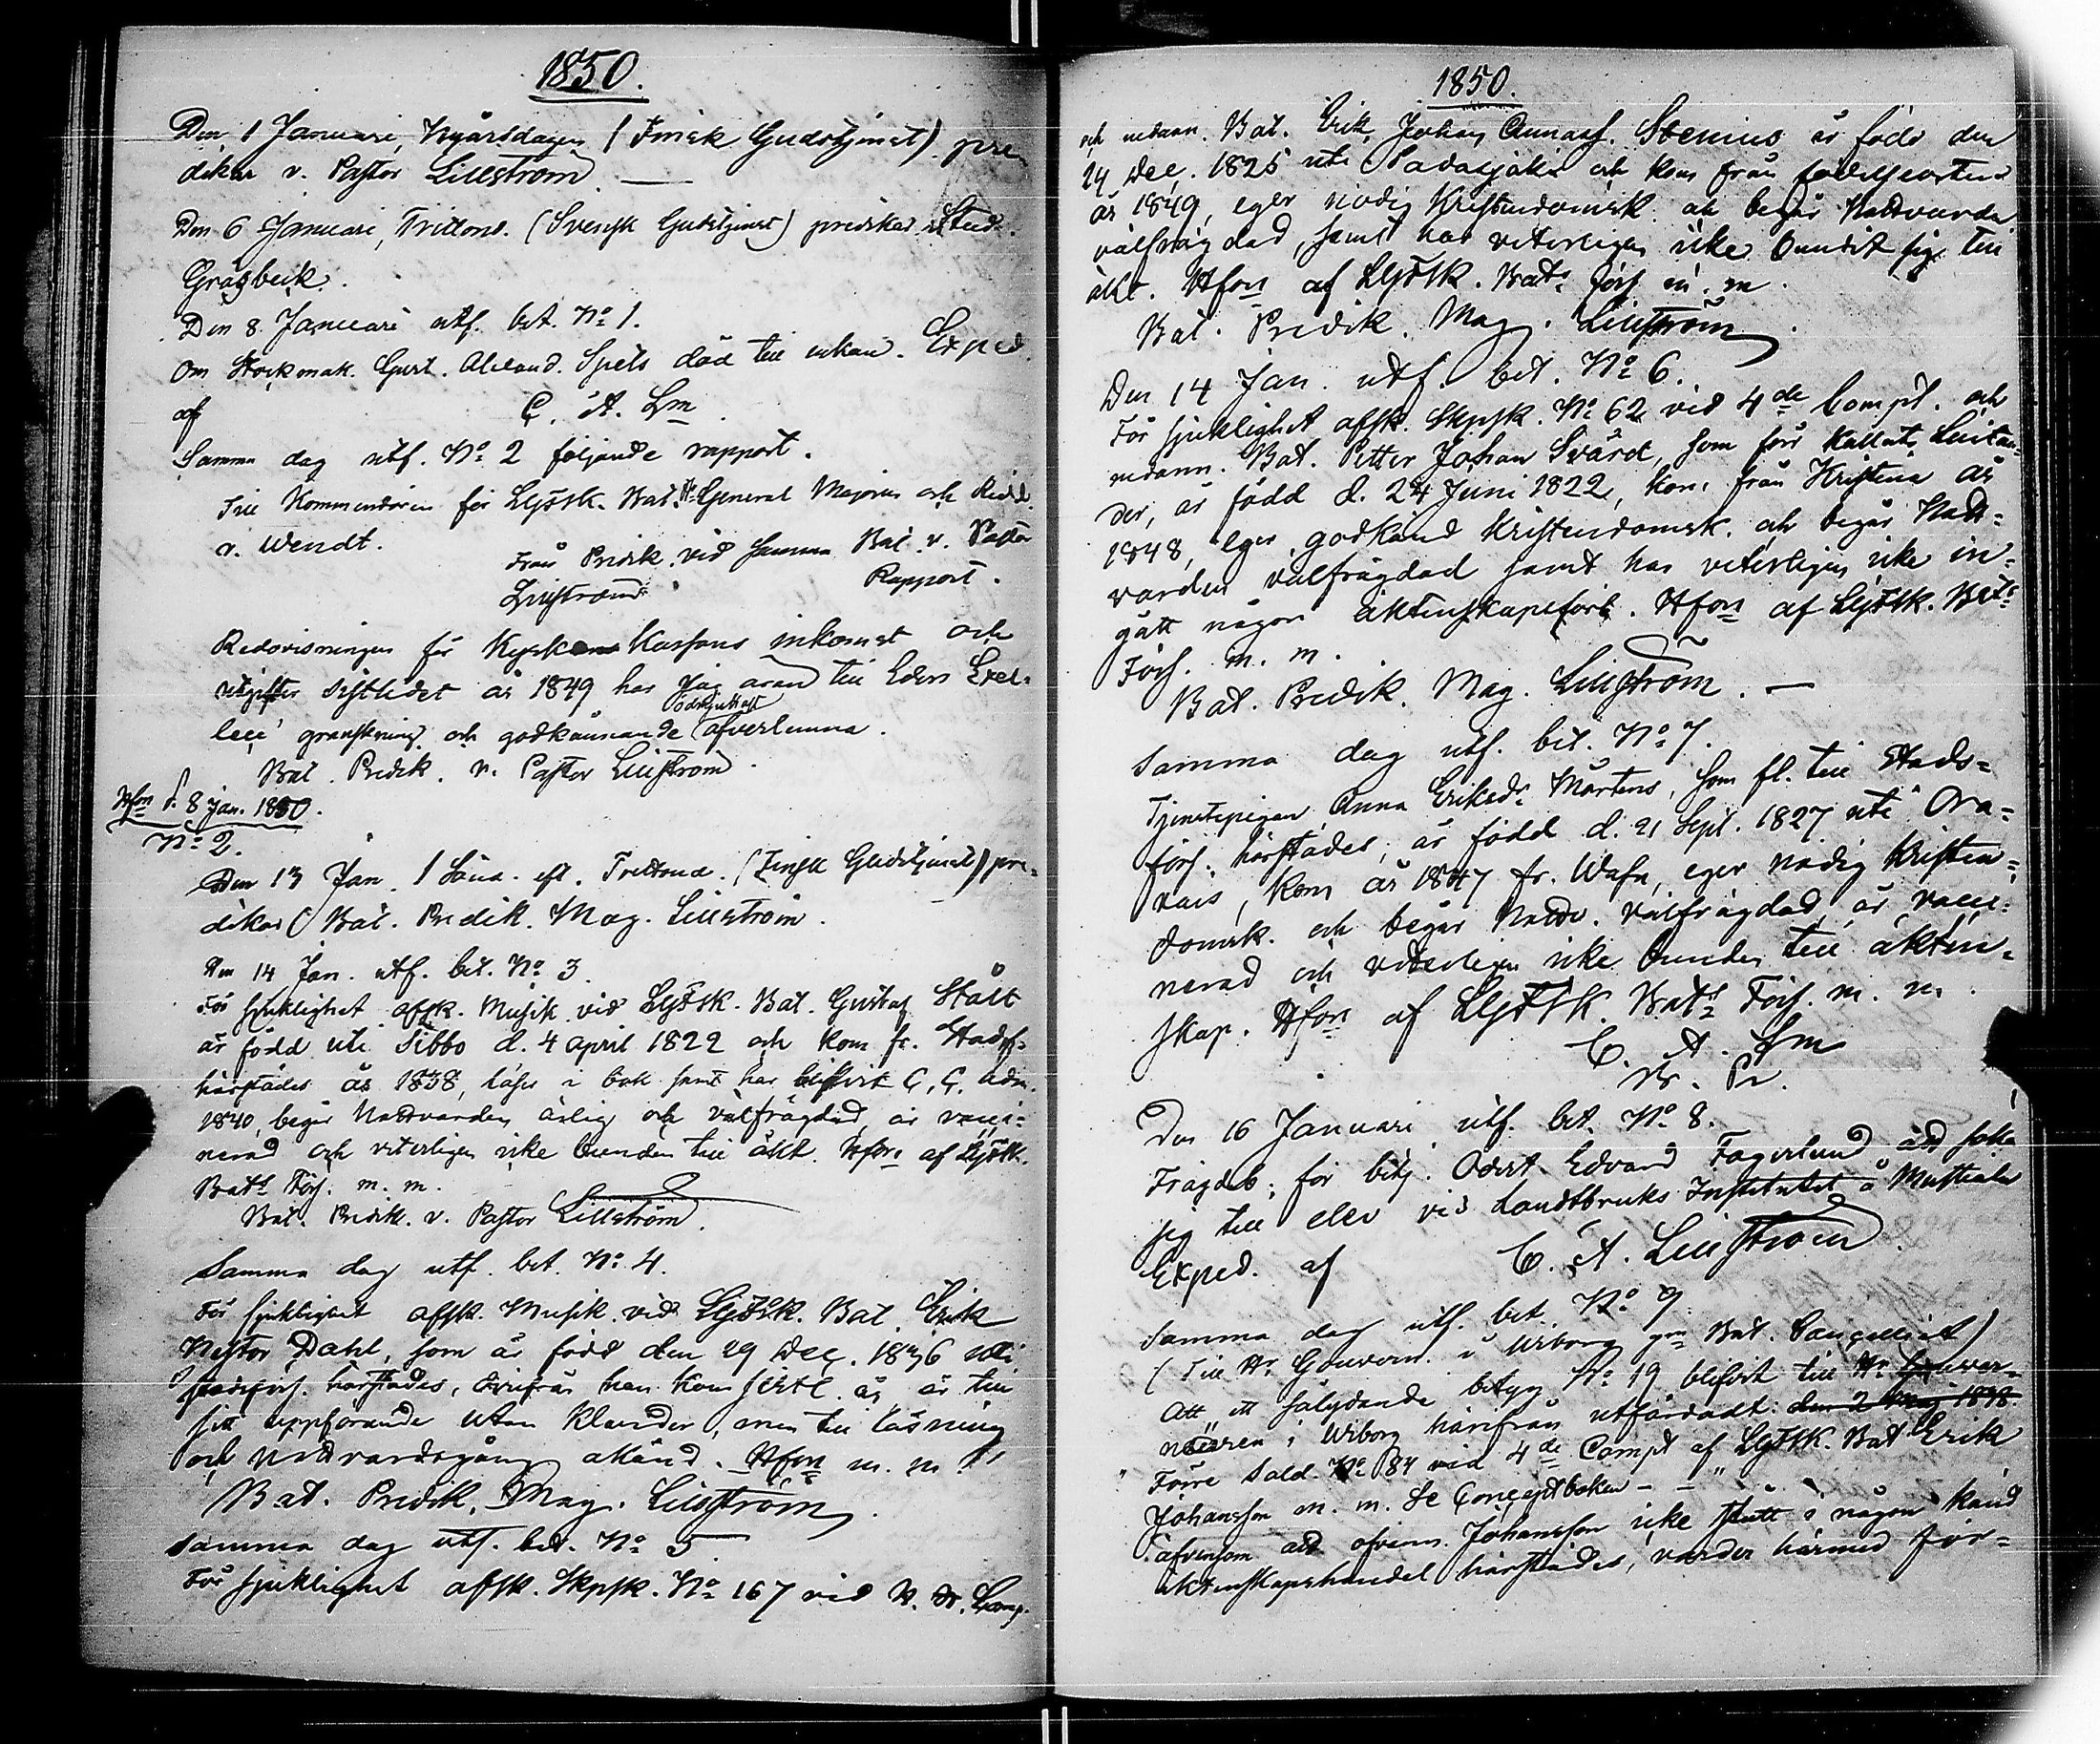 1850.
Den 1 Januari, Nyårsdagen (Finsk Gudstjenst) pre-
dikar v. Pastor Lillström. —
Den 6 Januari, Trettond. (Svensk Gudstjenst) predikar Stud.
Gråsbeck.
Den 8 Januari utf. bet. No 1.
Om Stockmak. Gust. Alexand. Spets död till enkan. Exped.
af C. A. Lm
Samma dag utf. No 2 följande rapport.
Till Kommendören för LgFSk. Bat. Hr General Majoren och Ridd.
v. Wendt.
Från Predik. vid samma Bat. v. Pastor
Lillström Rapport.
Redovisningen för Kyrk Kassans inkomst och
utgifter sistledet år 1849 har jag äran till Eders Exel-
lens granskning och godkännande ödmjukast afverlemna.
Bat. Predik. v. Pastor Lillström.
Hfors d. 8 Jan. 1850.
No 2.
Den 13 Jan. 1 Sönd. eft. Trettond. (Finsk Gudstjenst) pre-
dikar Bat. Predik. Mag. Lillström.
Den 14 Jan. utf. bet. No 3.
För sjuklighet afsk. Musik. vid LgFSk. Bat. Gustaf Stålt
är född uti Sibbo d. 4 april 1822 och kom fr. Stadsf.
härstädes år 1838, läser i bok samt har blifvit C. C. adm.
1840, begår Nattvarden årlig och välfrägdad, är vacci-
nerad och veterligen icke bunden till äkt. Hfors af LgFSk.
Bats Förs. m. m.
Bat. Predik. v. Pastor Lillström.
Samma dag utf. bet. No 4.
För sjuklighet afsk. Musik. vid LgFSk. Bat. Erik
Nestor Dahl, som är född den 29 Dec. 1836 uti
Stadsförs. härstädes, hvarifrån han kom sistl. år är till
sitt uppförande utan klander, men till läsning
och nattvardsgång okänd. Hfors m. m.
Bat. Predik. Mag. Lillström.
Samma dag utf. bet. No 5
För sjuklighet afsk. Skpsk. No 167 vid Comp.
1850.
och nedann. Bat. Erik Johan Stenius är född den
24 Dec. 1825 uti Padasjoki och kom från födelseorten
år 1849, eger nödig Kristendomsk. och begår Nattvarden
välfrägdad, samt har veterligen icke bundit sig till
äkt. Hfors af LgFSk. Bats förs. m. m.
Bat. Predik. Mag. Lillström.
Den 14 Jan. utf. bet. No 6.
För sjuklighet afsk. Skpsk. No 62 vid 4de Compt. och
nedann. Bat. Petter Johan Svärd, som förr kallats
der, är född d. 24 Juni 1822, kom från Kristina år
1848, eger godkänd Kristendomsk. och begår Natt-
varden välfrägdad samt har veterligen icke in-
gått någon äktenskapsförb. Hfors af LgFSk. Bats
Förs. m. m.
Bat. Predik. Mag. Lillström. —
Samma dag utf. bet. No 7.
Tjenstepigan Anna Eriksdr Mårtens, som fl. till Stads-
förs. härstädes, är född d. 21 Sept. 1827 uti Ora-
vais, kom år 1847 fr. Wasa, eger nödig Kristen-
domsk. och begår Nattv. välfrägdad, är vacci-
nerad och veterligen icke bunden till äkten-
skap. Hfors af LgFSk. Bats Förs. m. m.
C. A. Lm
Den 16 Januari utf. bet. No 8.
Frägdeb. för betj. Edvard Fagerlund att söka
sig till elev vid Landtbruks Institutet å Mustiala
Exped. af C. A. Lillström.
Samma dag utf. bet. No 9
(Till Hr Gouvern. i Wiborg gm Bat. Cancelliet)
Att ett sålydande betyg No 19 blifvit till Hr Gouver-
neuren i Wiborg härifrån utfärdadt: den 2 Maj 1848.
"Förre Sold. No 84 vid 4de Compt af LgFSk. Bat Erik
Johansson m. m. Se Conceptboken — — "
äfvensom att ofvann. Johansson icke stått i någon känd
äktenskapshandel härstädes, varder härmed för-